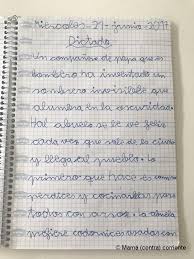 miercoles-21-junio 2017
Dictado
Un compañero de papa que es
bombero ha inventado un
sombrero invisible que
alumbra en la oscuridad.
Al abuelo se le ve feliz
cada vez que sale de la ciudad
y llega al pueblo. Lo
primero que hace es comprar
perdices y cocinarlas para
todos con arroz. La abuela
prefiere codornices asadas con
© Mamá (contra) corriente